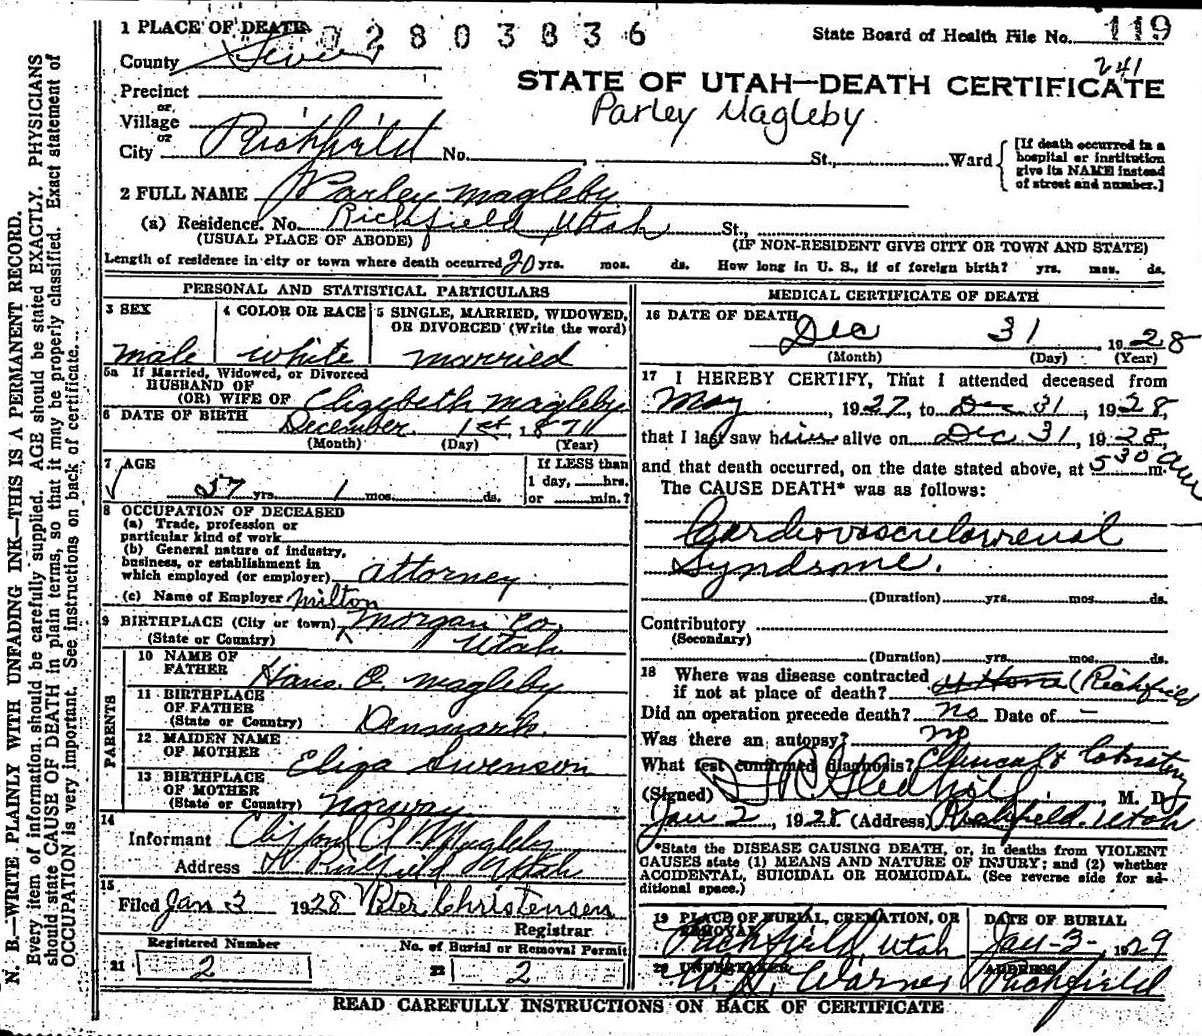 1 PLACE OF DEATH 02803836 State Board of Health File No. 119
County Sevier 241
STATE OF UTAH—DEATH CERTIFICATE
Precinct
or
Village Parley Magleby
or
City Richfield No. St., Ward
[If death occurred in a hospital or institution give its NAME instead of street and number.]
2 FULL NAME Parley Magleby
(a) Residence. No. Richfield, Utah St.,
(USUAL PLACE OF ABODE) (IF NON-RESIDENT GIVE CITY OR TOWN AND STATE)
Length of residence in city or town where death occurred 20 yrs. mos. ds. How long in U. S., if of foreign birth? yrs. mos. ds.
PERSONAL AND STATISTICAL PARTICULARS
3 SEX 4 COLOR OR RACE 5 SINGLE, MARRIED, WIDOWED, OR DIVORCED (Write the word)
male white married
5a If Married, Widowed, or Divorced
HUSBAND OF
(OR) WIFE OF Elizebeth Magleby
6 DATE OF BIRTH December 1st, 1871
(Month) (Day) (Year)
7 AGE If LESS than
1 day, hrs.
57 yrs. 1 mos. ds. or min.?
8 OCCUPATION OF DECEASED
(a) Trade, profession or
particular kind of work
(b) General nature of industry,
business, or establishment in
which employed (or employer) attorney
(c) Name of Employer
Milton
9 BIRTHPLACE (City or town) Morgan Co.
(State or Country) Utah
PARENTS
10 NAME OF
FATHER Hans O. Magleby
11 BIRTHPLACE
OF FATHER
(State or Country) Denmark
12 MAIDEN NAME
OF MOTHER Eliza Swenson
13 BIRTHPLACE
OF MOTHER
(State or Country) Norway
14
Informant Clifford Magleby
Address Richfield Utah
15
Filed Jan 3 1928 Peter Christensen
Registrar
Registered Number No. of Burial or Removal Permit
21 2 22 2
MEDICAL CERTIFICATE OF DEATH
16 DATE OF DEATH
Dec 31 1928
(Month) (Day) (Year)
17 I HEREBY CERTIFY, That I attended deceased from
May, 1927, to Dec 31, 1928,
that I last saw him alive on Dec 31, 1928,
and that death occurred, on the date stated above, at 530 am m.
The CAUSE DEATH* was as follows:
Cardiovascularrenal
Syndrome.
(Duration) yrs. mos. ds.
Contributory
(Secondary)
(Duration) yrs. mos. ds.
18 Where was disease contracted
if not at place of death? (Richfield
Did an operation precede death? no Date of –
Was there an autopsy? no
What test confirmed diagnosis? Clinical & Laboratory
(Signed) Gledhill, M. D.
Jan 2, 1928 (Address) Richfield. Utah
*State the DISEASE CAUSING DEATH, or, in deaths from VIOLENT
CAUSES state (1) MEANS AND NATURE OF INJURY; and (2) whether
ACCIDENTAL, SUICIDAL OR HOMICIDAL. (See reverse side for ad-
ditional space.)
19 PLACE OF BURIAL, CREMATION, OR REMOVAL DATE OF BURIAL
Richfield Utah Jan-3- 1929
20 UNDERTAKER ADDRESS
Warner Richfield
READ CAREFULLY INSTRUCTIONS ON BACK OF CERTIFICATE
N. B.—WRITE PLAINLY WITH UNFADING INK—THIS IS A PERMANENT RECORD.
Every item of information should be carefully supplied. AGE should be stated EXACTLY. PHYSICIANS
should state CAUSE OF DEATH in plain terms, so that it may be properly classified. Exact statement of
OCCUPATION is very important. See instructions on back of certificate.